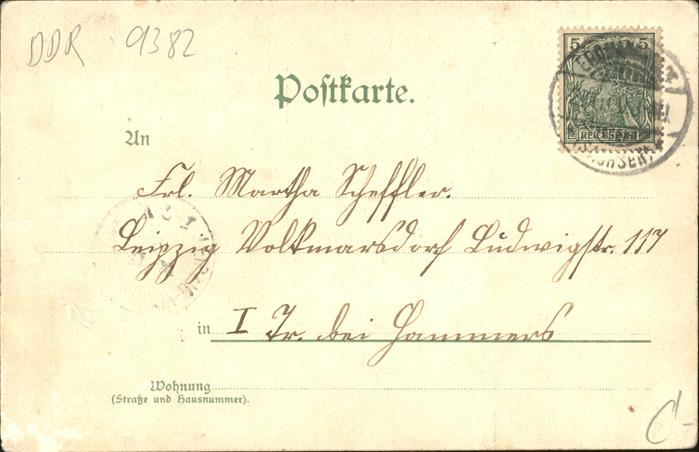 DDR 9382
5 5
REICHSPOST
(SACHSEN)
Postkarte.
An
Frl. Martha Scheffler.
Leipzig Volkmarsdorf Ludwigstr. 117
in I Tr. bei Hammers
Wohnung
(Straße und Hausnummer).
C-